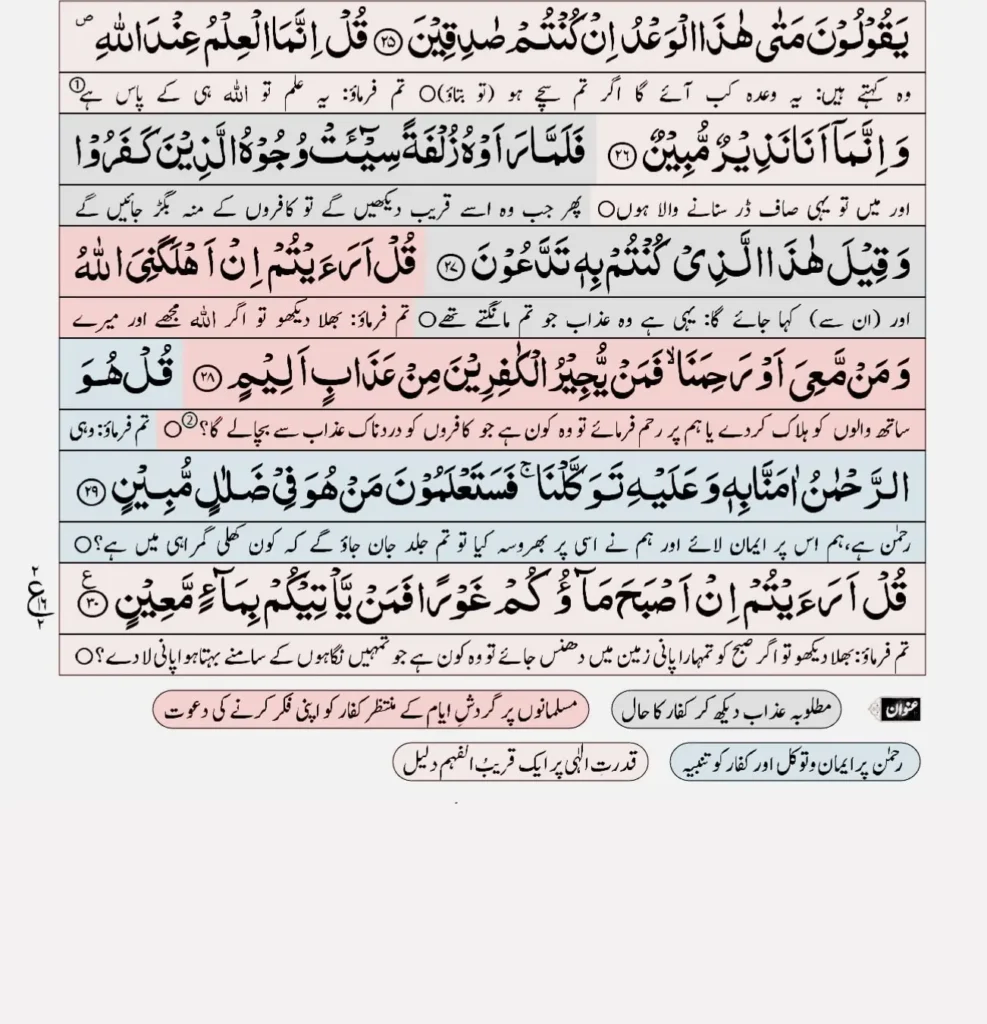 يَقُوْلُوْنَ مَتٰى هٰذَا الْوَعْدُ اِنْ كُنْتُمْ صٰدِقِيْنَ ﴿۲۵﴾ قُلْ اِنَّمَا الْعِلْمُ عِنْدَ اللّٰهِ ۪
وہ کہتے ہیں: یہ وعدہ کب آئے گا اگر تم سچے ہو (تو بتاؤ)○ تم فرماؤ: یہ علم تو اللہ ہی کے پاس ہے①
وَ اِنَّمَاۤ اَنَا نَذِيْرٌ مُّبِيْنٌ ﴿۲۶﴾ فَلَمَّا رَاَوْهُ زُلْفَةً سِيْٓـَٔتْ وُجُوْهُ الَّذِيْنَ كَفَرُوْا
اور میں تو یہی صاف ڈر سنانے والا ہوں○ پھر جب وہ اسے قریب دیکھیں گے تو کافروں کے منہ بگڑ جائیں گے
وَ قِيْلَ هٰذَا الَّذِيْ كُنْتُمْ بِهٖ تَدَّعُوْنَ ﴿۲۷﴾ قُلْ اَرَءَيْتُمْ اِنْ اَهْلَكَنِيَ اللّٰهُ
اور (ان سے) کہا جائے گا: یہی ہے وہ عذاب جو تم مانگتے تھے○ تم فرماؤ: بھلا دیکھو تو اگر اللہ مجھے اور میرے
وَ مَنْ مَّعِيَ اَوْ رَحِمَنَا ۙ فَمَنْ يُّجِيْرُ الْكٰفِرِيْنَ مِنْ عَذَابٍ اَلِيْمٍ ﴿۲۸﴾ قُلْ هُوَ
ساتھ والوں کو ہلاک کردے یا ہم پر رحم فرمائے تو وہ کون ہے جو کافروں کو دردناک عذاب سے بچالے گا؟②○ تم فرماؤ: وہی
الرَّحْمٰنُ اٰمَنَّا بِهٖ وَ عَلَيْهِ تَوَكَّلْنَا ۚ فَسَتَعْلَمُوْنَ مَنْ هُوَ فِيْ ضَلٰلٍ مُّبِيْنٍ ﴿۲۹﴾
رحمٰن ہے، ہم اس پر ایمان لائے اور ہم نے اسی پر بھروسہ کیا تو تم جلد جان جاؤ گے کہ کون کھلی گمراہی میں ہے؟○
قُلْ اَرَءَيْتُمْ اِنْ اَصْبَحَ مَآؤُكُمْ غَوْرًا فَمَنْ يَّاْتِيْكُمْ بِمَآءٍ مَّعِيْنٍ ﴿۳۰﴾ ع
۲ ع ۱۶ ۲
تم فرماؤ: بھلا دیکھو تو اگر صبح کو تمہارا پانی زمین میں دھنس جائے تو وہ کون ہے جو تمہیں نگاہوں کے سامنے بہتا ہوا پانی لا دے؟○
عنوان مطلوبہ عذاب دیکھ کر کفار کا حال مسلمانوں پر گردشِ ایام کے منتظر کفار کو اپنی فکر کرنے کی دعوت
رحمٰن پر ایمان و توکل اور کفار کو تنبیہ قدرتِ الٰہی پر ایک قریبُ الفہم دلیل